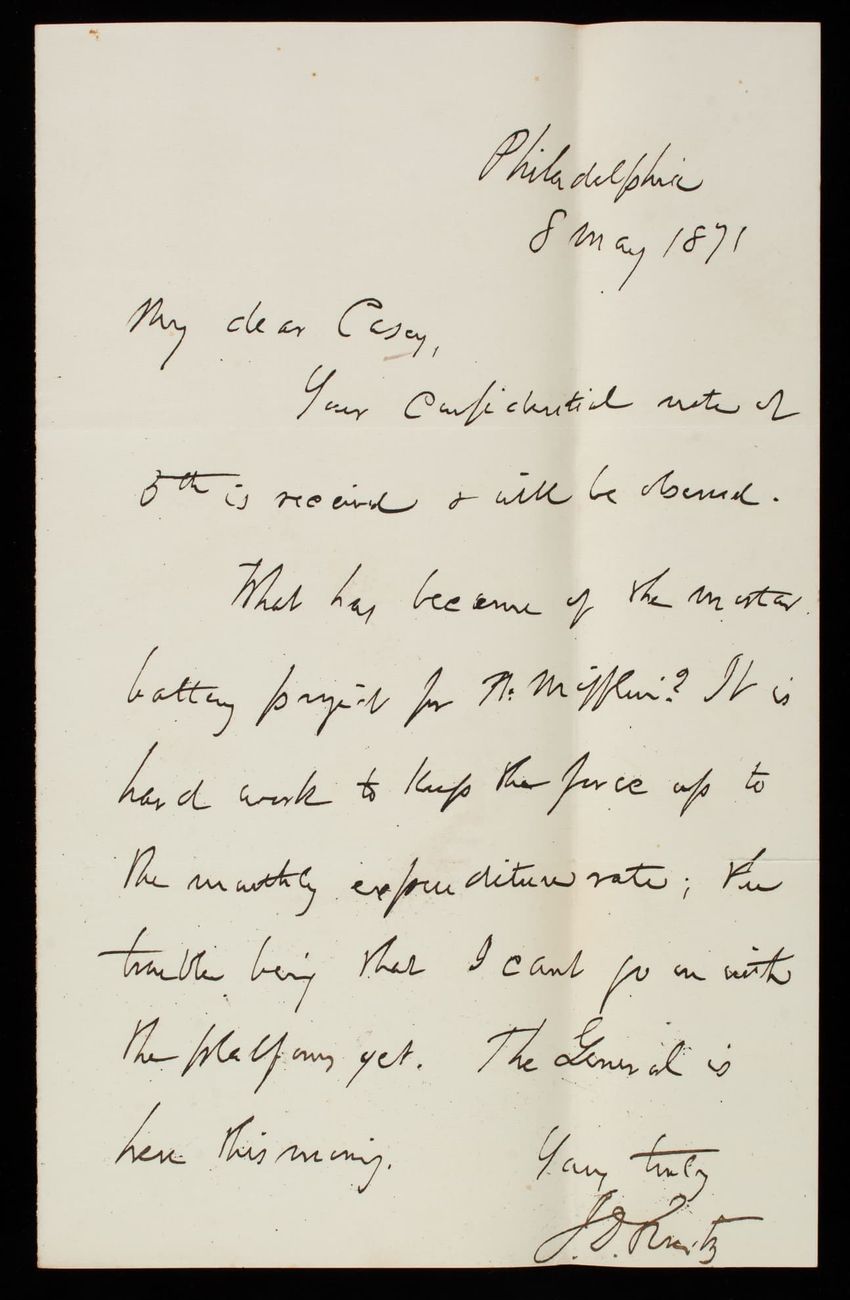 Philadelphia
8 May 1871
My dear Casey,
Your Confidential note of
5th is received & will be observed.
What has become of the mortar
battery project for Ft. Mifflin? It is
hard work to keep the force up to
the monthly expenditure rate; the
trouble being that I cant go on with
the platforms yet. The General is
here this morning.
Yours truly
J.D. Kurtz